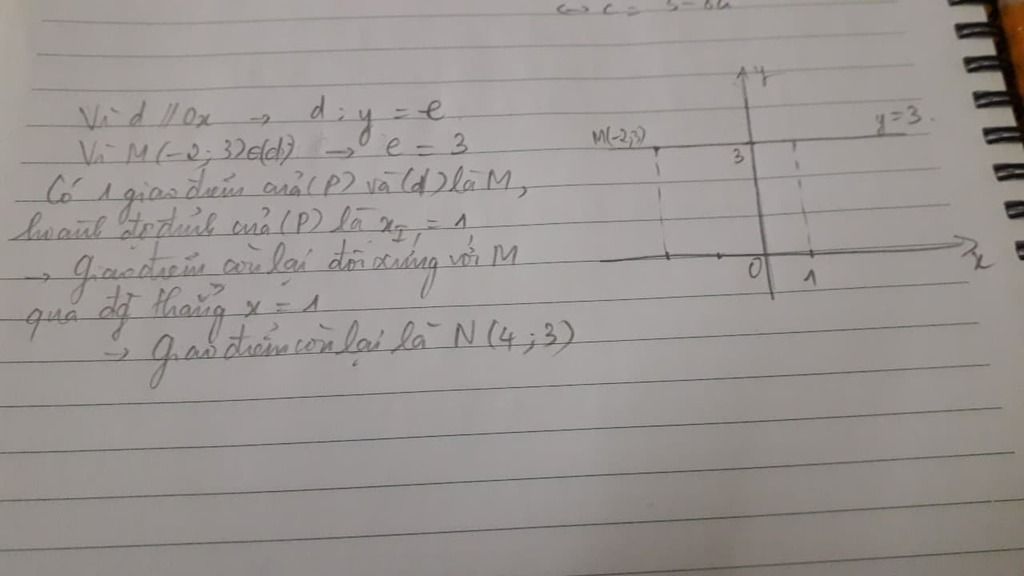 <-> c = 3-8a
Vì d // Ox → d: y = e
Vì M(-2; 3)∈(d) → e = 3
Có 1 giao điểm của (P) và (d) là M,
hoành độ đỉnh của (P) là x_I = 1
→ Giao điểm còn lại đối xứng với M
qua đg thẳng x = 1
→ giao điểm còn lại là N(4;3)
y
M(-2;3)
y = 3
3
O
1
x